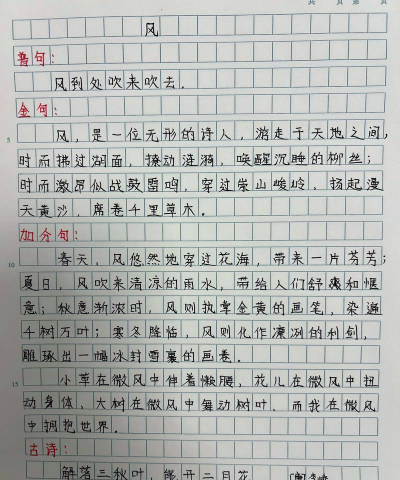 共 页 第 页
风
普句：
风到处吹来吹去.
金句：
5
风，是一位无形的诗人，游走于天地之间，
时而拂过湖面，撩动涟漪，唤醒沉睡的柳丝；
时而激昂似战鼓雷鸣，穿过崇山峻岭，扬起漫
天黄沙，席卷千里草木.
加分句：
10
春天，风悠然地穿过花海，带来一片芬芳；
夏日，风吹来清凉的雨水，带给人们舒爽和惬
意；秋意渐浓时，风则执掌金黄的画笔，染遍
千树万叶；寒冬降临，风则化作凛冽的利剑，
雕琢出一幅冰封雪裹的画卷.
15
小草在微风中伸着懒腰，花儿在微风中扭
动身体，大树在微风中舞动树叶.而我在微风
中拥抱世界.
古诗：
解落三秋叶，能开二月花